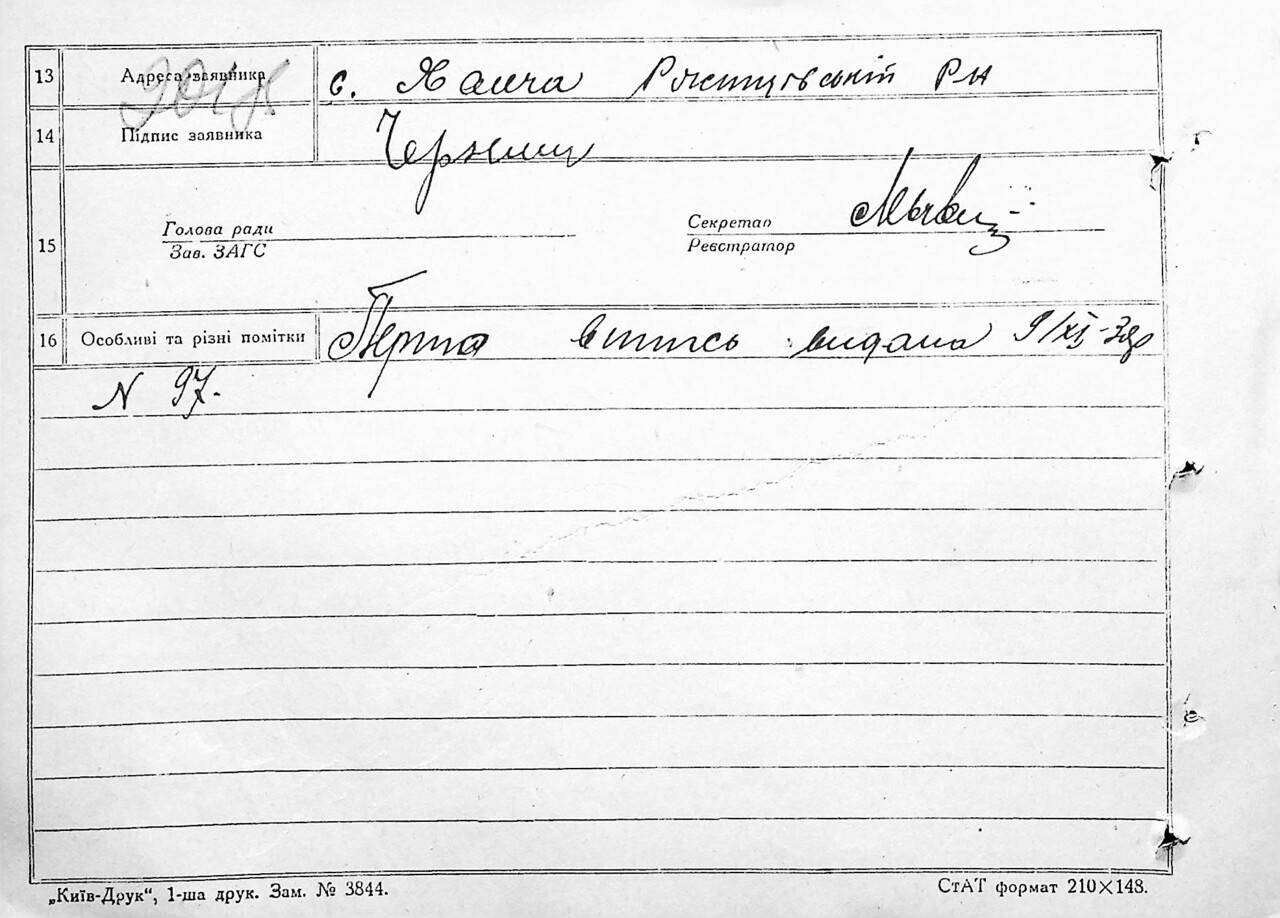 13 Адреса заявника с. Халча Ржищівський Рн
14 Підпис заявника
15 Голова ради Секретар
Зав. ЗАГС Реєстратор
16 Особливі та різні помітки Перша випись видана 9/XI-38р
N 97.
„Київ-Друк“, 1-ша друк. Зам. № 3844. СтАТ формат 210×148.